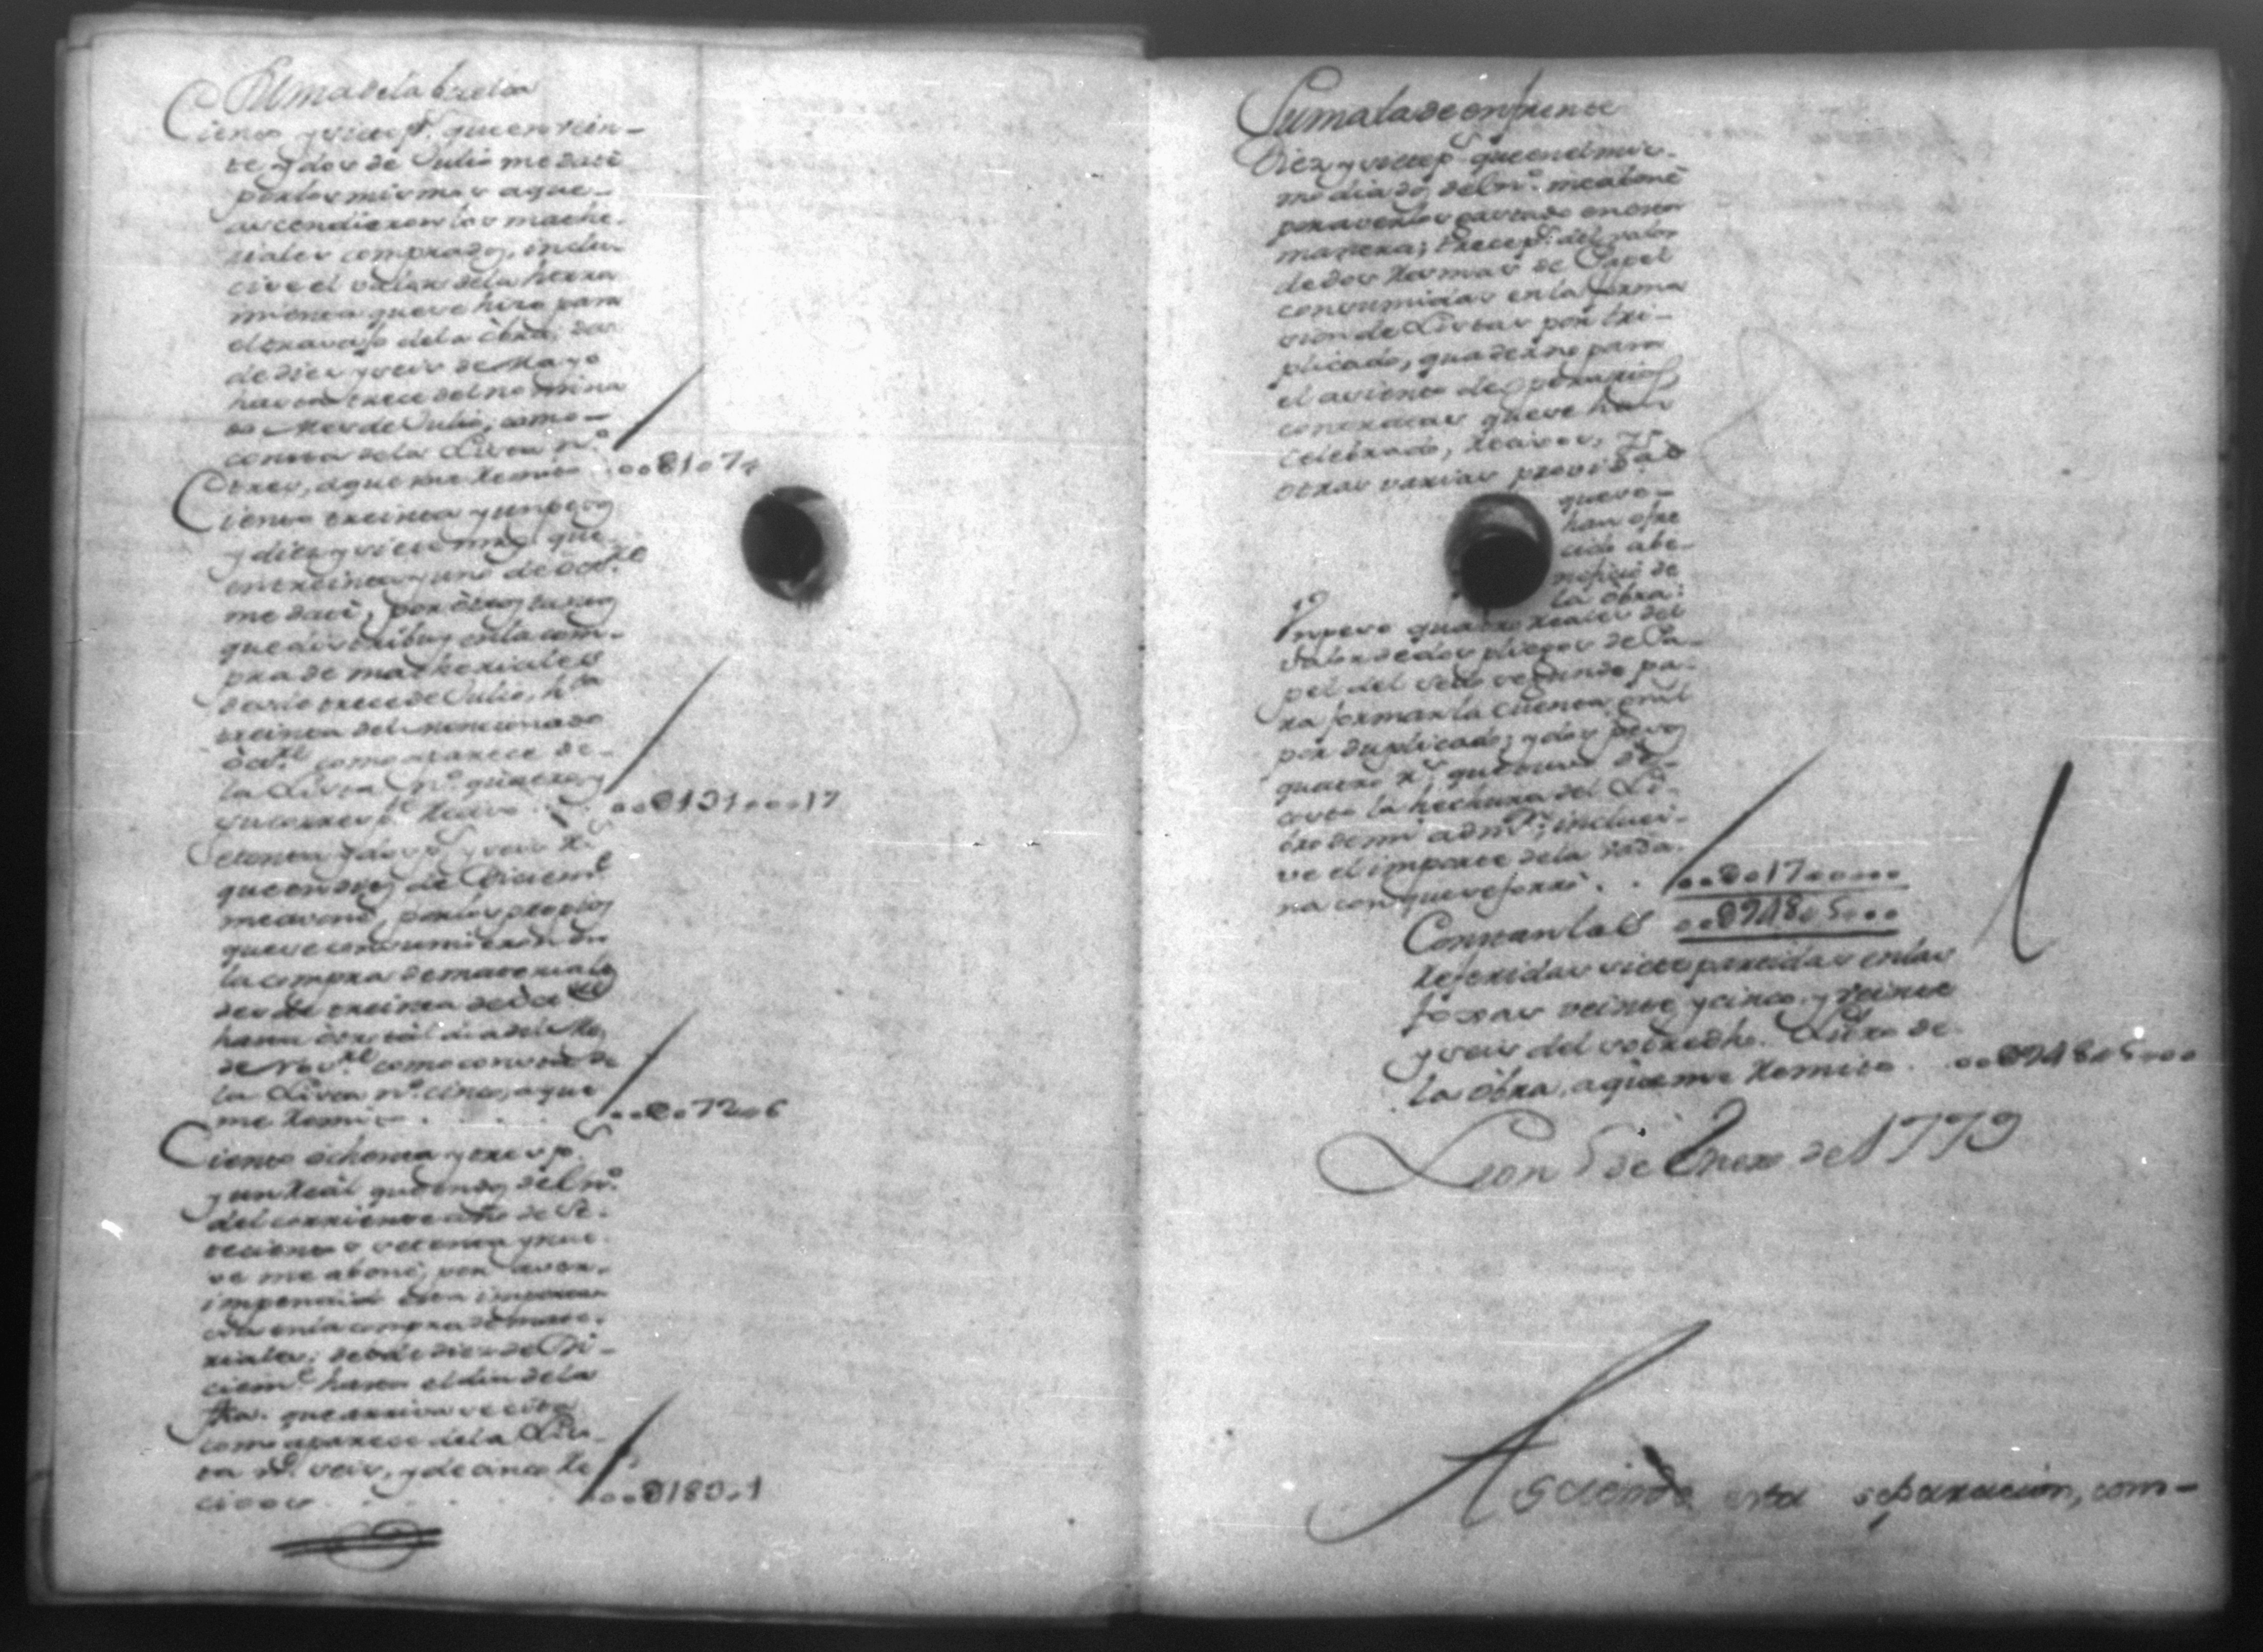 Suma de la buelta
Ciento y siete p.s que en vein-
te y dos de Julio me daté
por los mismos a que
ascendieron los mathe-
riales comprados, inclu-
cive el valor de la herra
mienta que se hizo para
el travajo de la óbra, des
de diez y seis de Mayo
hasta trece del nomina
do Mes de Julio; como
consta de la Lista n.o
tres, a que me remito
Ciento treinta y un pesos
y diez y siete mrs. que
en treinta y uno de Oct.re
me daté, por ótros tantos
que distribuy en la com-
pra de matheriales
desde trece de Julio, h.ta
treinta del mencionado
Oct.re como aparece de
la Lista n.o quatro, y
su corresp.te recivo . . . ..0131...17
Setenta y dos p.s y seis r.s
que en dies de Diciem.e
me avoné, por los propios
que se consumieron en
la compra de materiales
desde treinta de Oct.re
hasta ôtro tal dia del Mes
de Nov.re como consta de
la Lista n.o cinco, a que
me remito . . . ..0.72.6
Ciento ochenta y tres p.s
y un real que en dos del m.o
del corriente año de Se-
tecientos setenta y nue-
ve me aboné, por aver
impendido esta importan
cia en la compra de mate-
riales; desde diez de Di-
ciem.e hasta el dia de la
fha. que arriva se cita
como aparece de la Lis-
ta n.o seis, y de cinco re
civos . . . ..0183.1
Suma la de enfrente
Diez y siete p.s que en el mis-
mo dia dos del m.o me aboné
por averlos gastado en esta
manera; trece p.s del valor
de dos resmas de Papel
consumidas en la forma
cion de Listas por tri-
plicado, quaderno para
el asiento de operarios,
contratas que se han
celebrado, recivos, y
otras varias provid.as
que se
han ofre
cido abe-
neficio de
la obra:
Un peso quatro reales del
valor de dos pliegos de Pa-
pel del sello segundo pa-
ra formar la cuenta gral
por duplicado; y dos pesos
quatro r.s que tuvo de
costo la hechura del Li-
bro de mi adm.on, inclusi-
ve el importe de la bada-
na con que se forró . . ..0.17.....
Constan las ..0948.5...
referidas siete partidas en las
foxas veinte y cinco, y veinte
y seis del sobredho. Libro de
la óbra, a que me remito. ..0948.5...
Leon 5 de Enero de 1779
Asciende esta separacion, com-